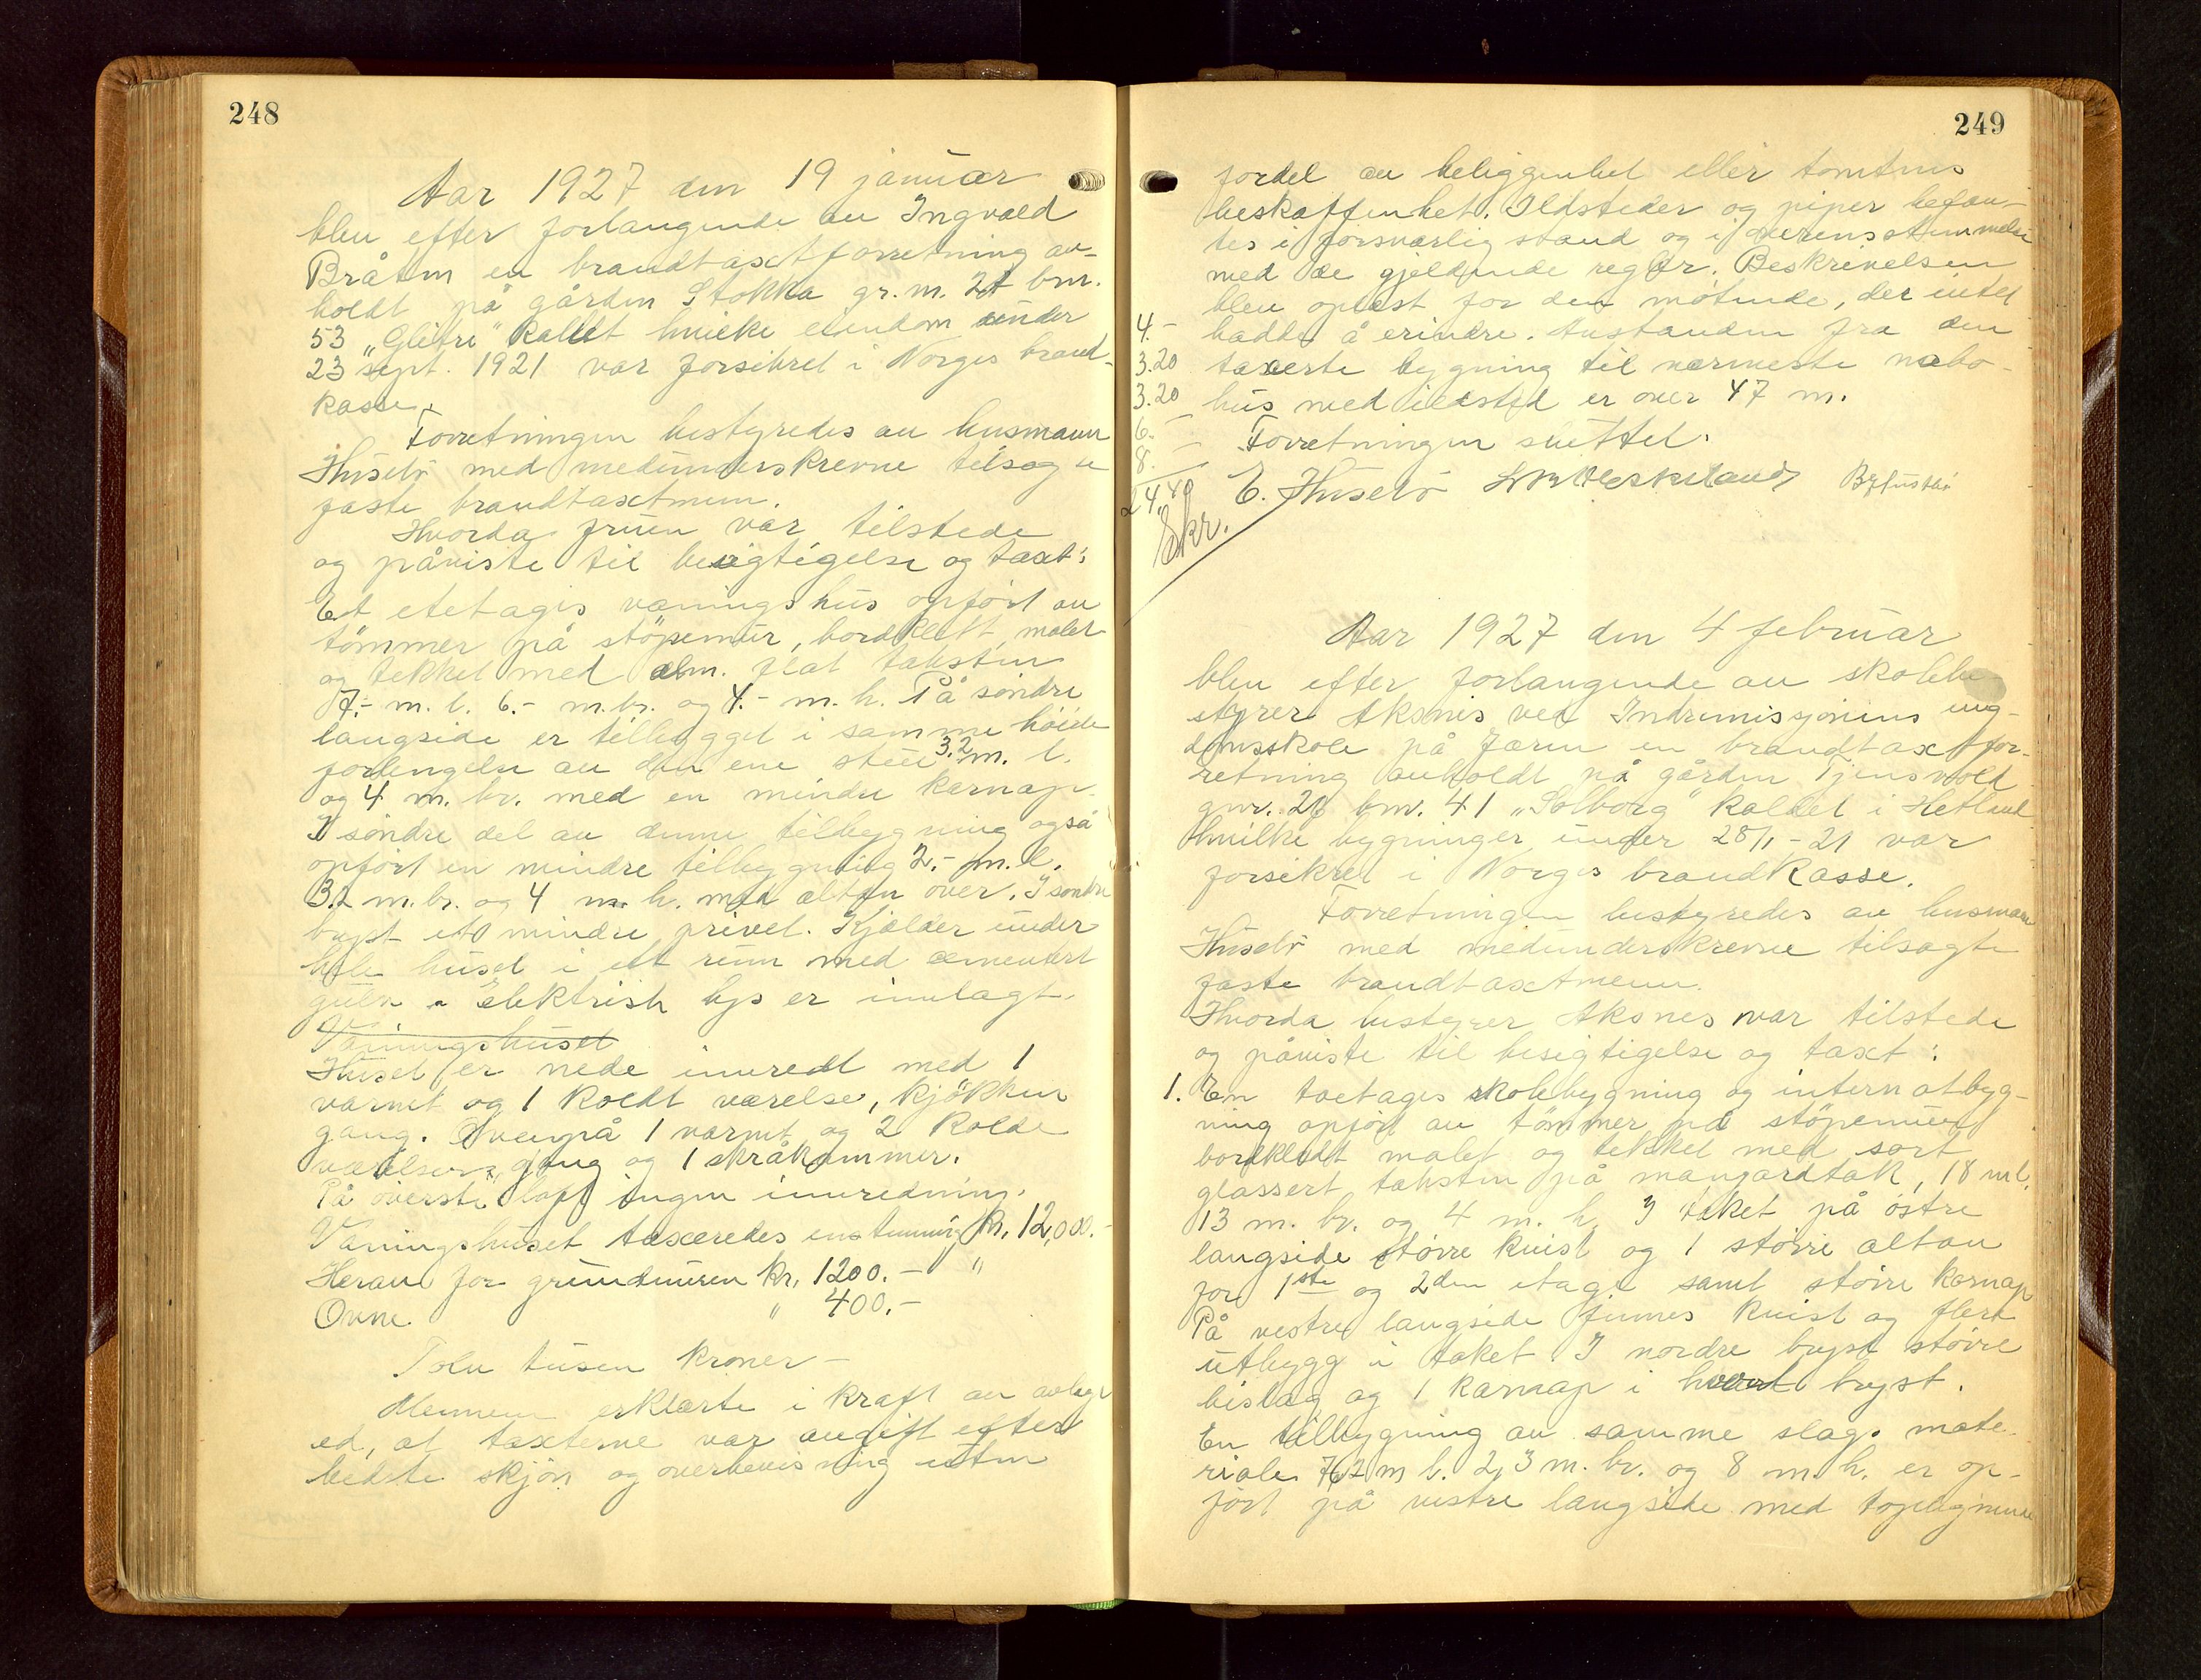 248
Aar 1927 den 19 januar
blev efter forlangende av Ingvald
Bråten en brandtaxtforretning av-
holdt på gården Stokka gr. nr. 21 bnr.
53 „Glitre" kaldt hvilke eiendom under
23 sept. 1921 var forsikret i Norges brand-
kasse.
Forretningen bestyredes av husmann
Husebø med medunderskrevne tilsagte
faste brandtaxtmenn.
Hvorda fruen var tilstede
og påviste til besigtigelse og taxt:
Et etetages våningshus opført av
tömmer på støpemur, bordklett malet
og tekket med alm. flat taksten
7.- m. l. 6.- m. br. og 4.- m. h. På søndre
langside er tilbygget i samme høide
forlengelse av den ene stue 3.2 m. l.
og 4 m. br. med en mindre karnap.
I søndre del av denne tilbygning også
opført en mindre tilbygning 2.- m. l.
3.2 m. br. og 4 m. h. med altan over. I søndre
bryst et mindre privet. Kjælder under
hele huset i ett rum med cementert
gulv. Elektrisk lys er innlagt.
Våningshuset
Huset er nede innredt med 1
varmt og 1 koldt værelse, kjökken
gang. Ovenpå 1 varmt og 2 kolde
værelser, gang og 1 skråkammer.
På øverste loft ingen innredning.
Våningshuset taxeredes enstemmig kr. 12,000.-
Herav for grundmuren kr. 1200.- "
Ovne " 400.-
Tolv tusen kroner -
Mennene erklærte i kraft av avlagt
ed, at taxterne var avgift efter
bedste skjøn og overbevisning uten
249
fordel av beliggenhet eller tomtens
beskaffenhet. Ildsteder og piper befan-
tes i forsvarlig stand og i overensstemmelse
med de gjeldende regler. Beskrivelsen
blev oplæst for den møtende, der intet
4.- hadde å erindre. Avstanden fra den
3.20 taxerte bygning til nærmeste nabo-
3.20 hus med ildsted er over 47 m.
6.- Forretningen sluttet.
8.-
24.40 E. Husebø
Skr.
Aar 1927 den 4 februar
blev efter forlangende av skolebe-
styrer Aksnes ved Indremissjonens ung-
domsskole på Jæren en brandtaxtfor-
retning avholdt på gården Tjensvold
gnr. 28 bnr. 41 „Solborg" kaldet i Hetland
hvilke bygninger under 28/1 - 21 var
forsikret i Norges brandkasse.
Forretningen bestyredes av husmann
Husebø med medunderskrevne tilsagte
faste brandtaxtmenn.
Hvorda bestyrer Aksnes var tilstede
og påviste til besigtigelse og taxt:
1. En toetages skolebygning og internatbyg-
ning opført av tömmer på støpemur
bordkledt malet og tekket med sort
glassert taksten på mangardtak, 18 m l.
13 m. br. og 4 m. h. I taket på østre
langside större kvist og 1 større altan
for 1ste og 2den etage samt større karnap
På vestre langside finnes kvist og flere
utbygg i taket. I nordre bryst større
bislag og 1 karnap i hvert bryst.
En tilbygning av samme slags mate-
riale m l. 2,3 m. br. og 8 m. h. er op-
ført på vestre langside med